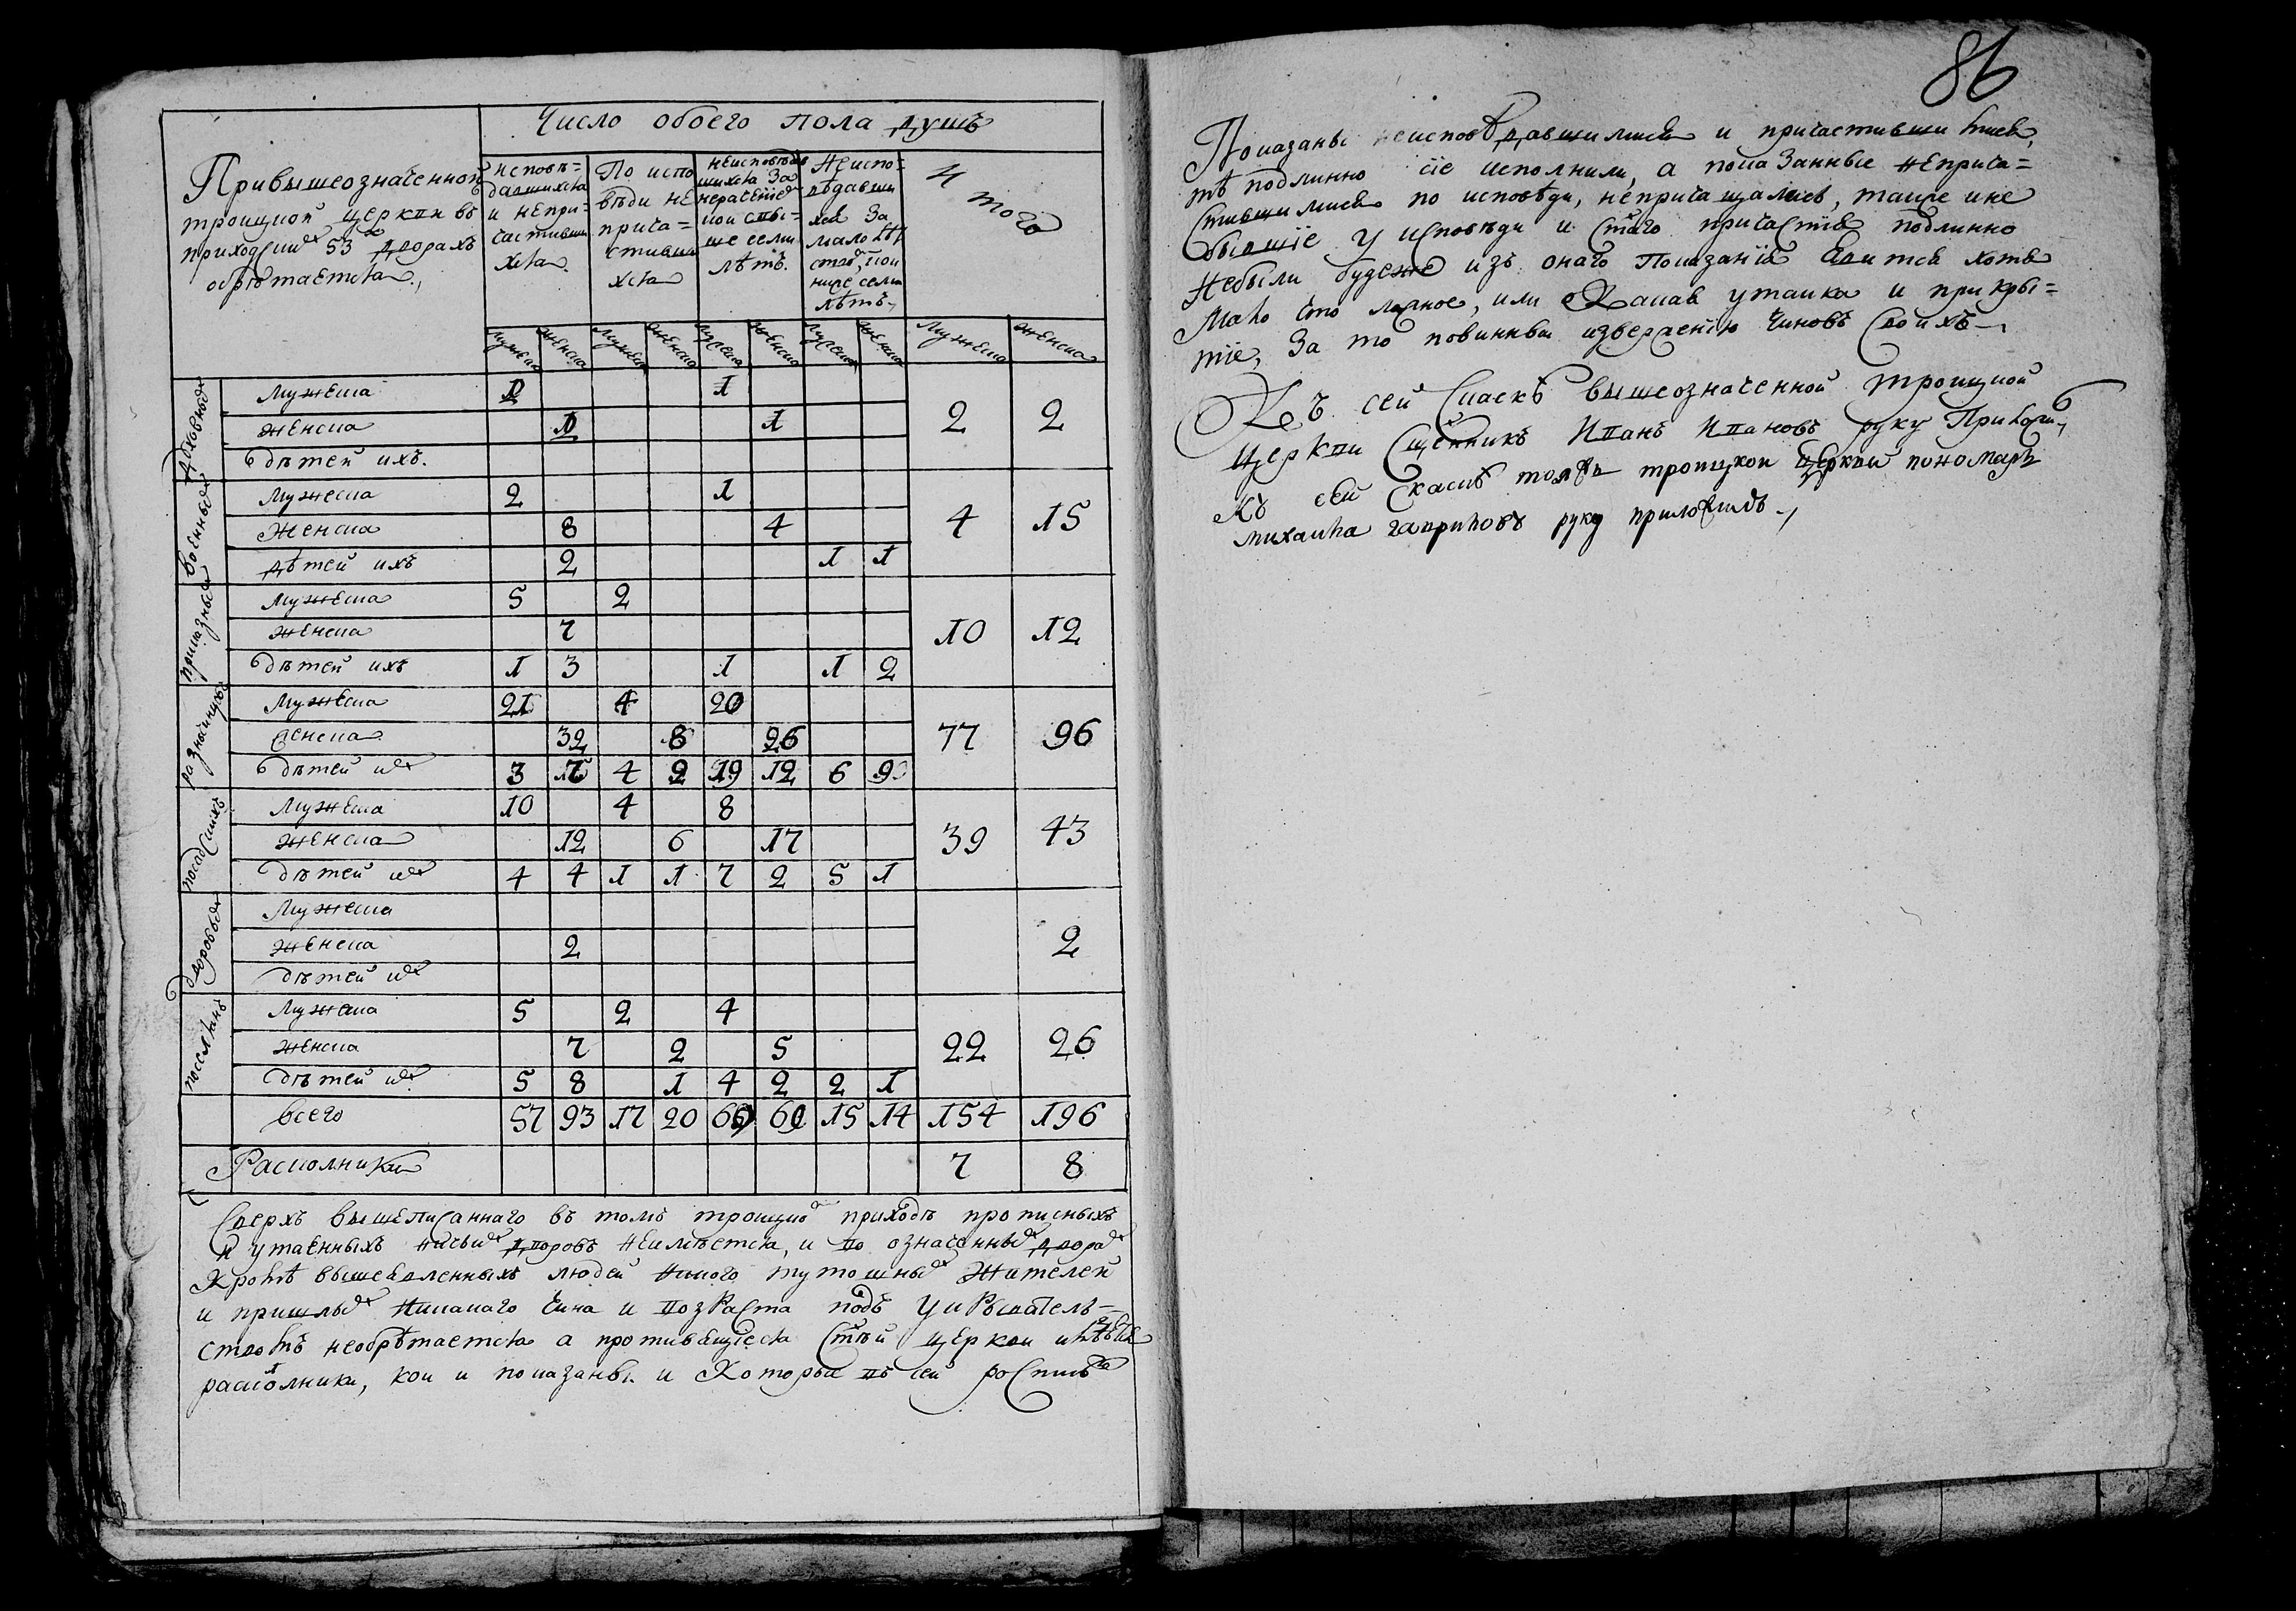 86
Число обоего пола душъ
Привышеозначенной
троицкой церкви въ
приходски 53 дворахъ
обрѣтается
исповѣ=
давшихся
и непри=
частивши
хся
По испо
вѣди не
прича=
стивши
хся
неисповѣдав
шихся за
нерачениѣ
кои свы=
ше семи
лѣтъ
Неиспо=
вѣдавши
хся за
мало лѣт
ство, кои
ниже семи
лѣтъ
И того
мужеска женска мужеска женска мужеска женска мужеска женска мужеска женска
духовныхъ
мужеска 1 1
женска 1 1 2 2
дѣтей ихъ
военныхъ
мужеска 2 1
женска 8 4 4 15
дѣтей ихъ 2 1 1
приказныхъ
мужеска 5 2
женска 7 10 12
дѣтей ихъ 1 3 1 1 2
разночинцовъ
мужеска 21 4 20
женска 32 8 26 77 96
дѣтей ихъ 3 4 2 19 12 6 9
посадскихъ
мужеска 10 4 8
женска 12 6 17 39 43
дѣтей ихъ 4 4 1 1 7 2 5 1
дворовыхъ
мужеска
женска 2 2
дѣтей ихъ
поселянъ
мужеска 5 2 4
женска 7 2 5 22 26
дѣтей ихъ 5 8 1 4 2 2 1
всего 57 93 17 20 15 14 154 196
Раскольники 7 8
Сверхъ вышеписаннаго въ томъ троицко приходѣ прописныхъ
и утаенныхъ ничьихъ дворовъ неимѣется, и во означенны двора
Кромѣ вышеявленныхъ людей никого тутошны жителей
и пришлы никакаго чина и возраста подъ укрыватель=
ствомъ необрѣтается а противящіеся стѣй церкви имѣются
раскольники, кои и показаны и которые въ сей росписѣ
Показаны исповѣдавшимися и причастившимися,
тѣ подлинно сіе исполнили, а показанные неприча=
стившимися по исповѣди, непричащались, такжеи не
бывшіе у исповѣди и стаго причастія подлинно
небыли будеже изъ онаго показанія явится хотя
мало что ложное, или какая утайка и прикры=
тіе, за то повинны изверженію чиновъ своихъ
Къ сей скаскѣ вышеозначенной троицкой
церкви сщенникъ Иванъ Ивановъ руку приложи,
Къ сей скаскѣ тояжъ троицкой церкви пономарь
михаила гавриловъ руку приложилъ